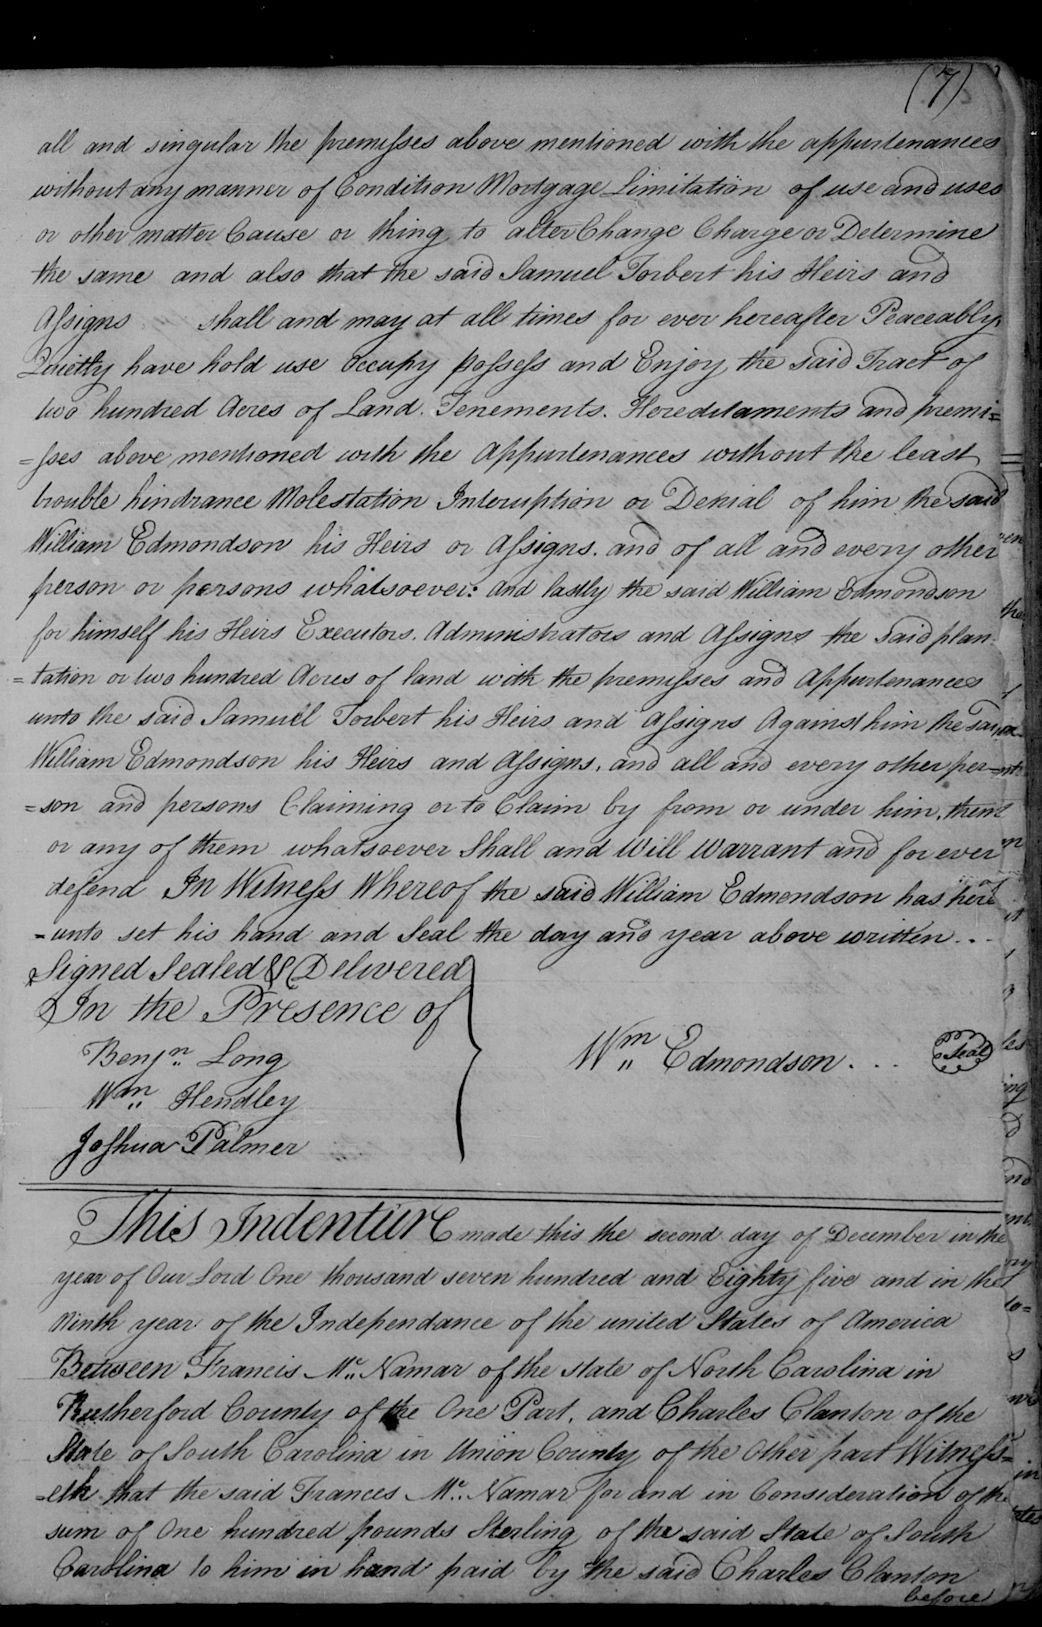 (7)
all and singular the premisses above mentioned with the appurtenances
without any manner of Condition Mortgage Limitation of use and uses
or other matter Cause or thing to alter Change Charge or Determine
the same and also that the said Samuel Torbert his Heirs and
Assigns shall and may at all times for ever hereafter Peaceably
Quietly have hold use occupy possess and Enjoy the said Tract of
two hundred Acres of Land. Tenements. Hereditaments and premi=
=sses above mentioned with the Appurtenances without the least
trouble hindrance Molestation Interuption or Denial of him the said
William Edmondson his Heirs or Assigns. and of all and every other
person or persons whatsoever: and lastly the said William Edmondson
for himself his Heirs Executors. Administrators and Assigns the said plan
=tation or two hundred Acres of land with the premisses and Appurtenances
unto the said Samuel Torbert his Heirs and Assigns Against him the said
William Edmondson his Heirs and Assigns, and all and every other per=
=son and persons Claiming or to Claim by from or under him, them
or any of them whatsoever Shall and Will Warrant and for ever
defend In Witness Whereof the said William Edmondson has here
-unto set his hand and Seal the day and year above written...
Signed Sealed & Delivered
In the Presence of
Benjn. Long
Wm. Hendley
Joshua Palmer
Wm. Edmondson... Seal
This Indenture made this the second day of December in the
year of Our Lord One thousand seven hundred and Eighty five and in the
Ninth year of the Independance of the united States of America
Between Francis Mc. Namar of the state of North Carolina in
Rutherford County of the One Part, and Charles Clanton of the
State of South Carolina in Union County of the Other part Witness=
-eth that the said Frances Mc. Namar for and in Consideration of the
sum of One hundred pounds Sterling of the said State of South
Carolina to him in hand paid by the said Charles Clanton
before